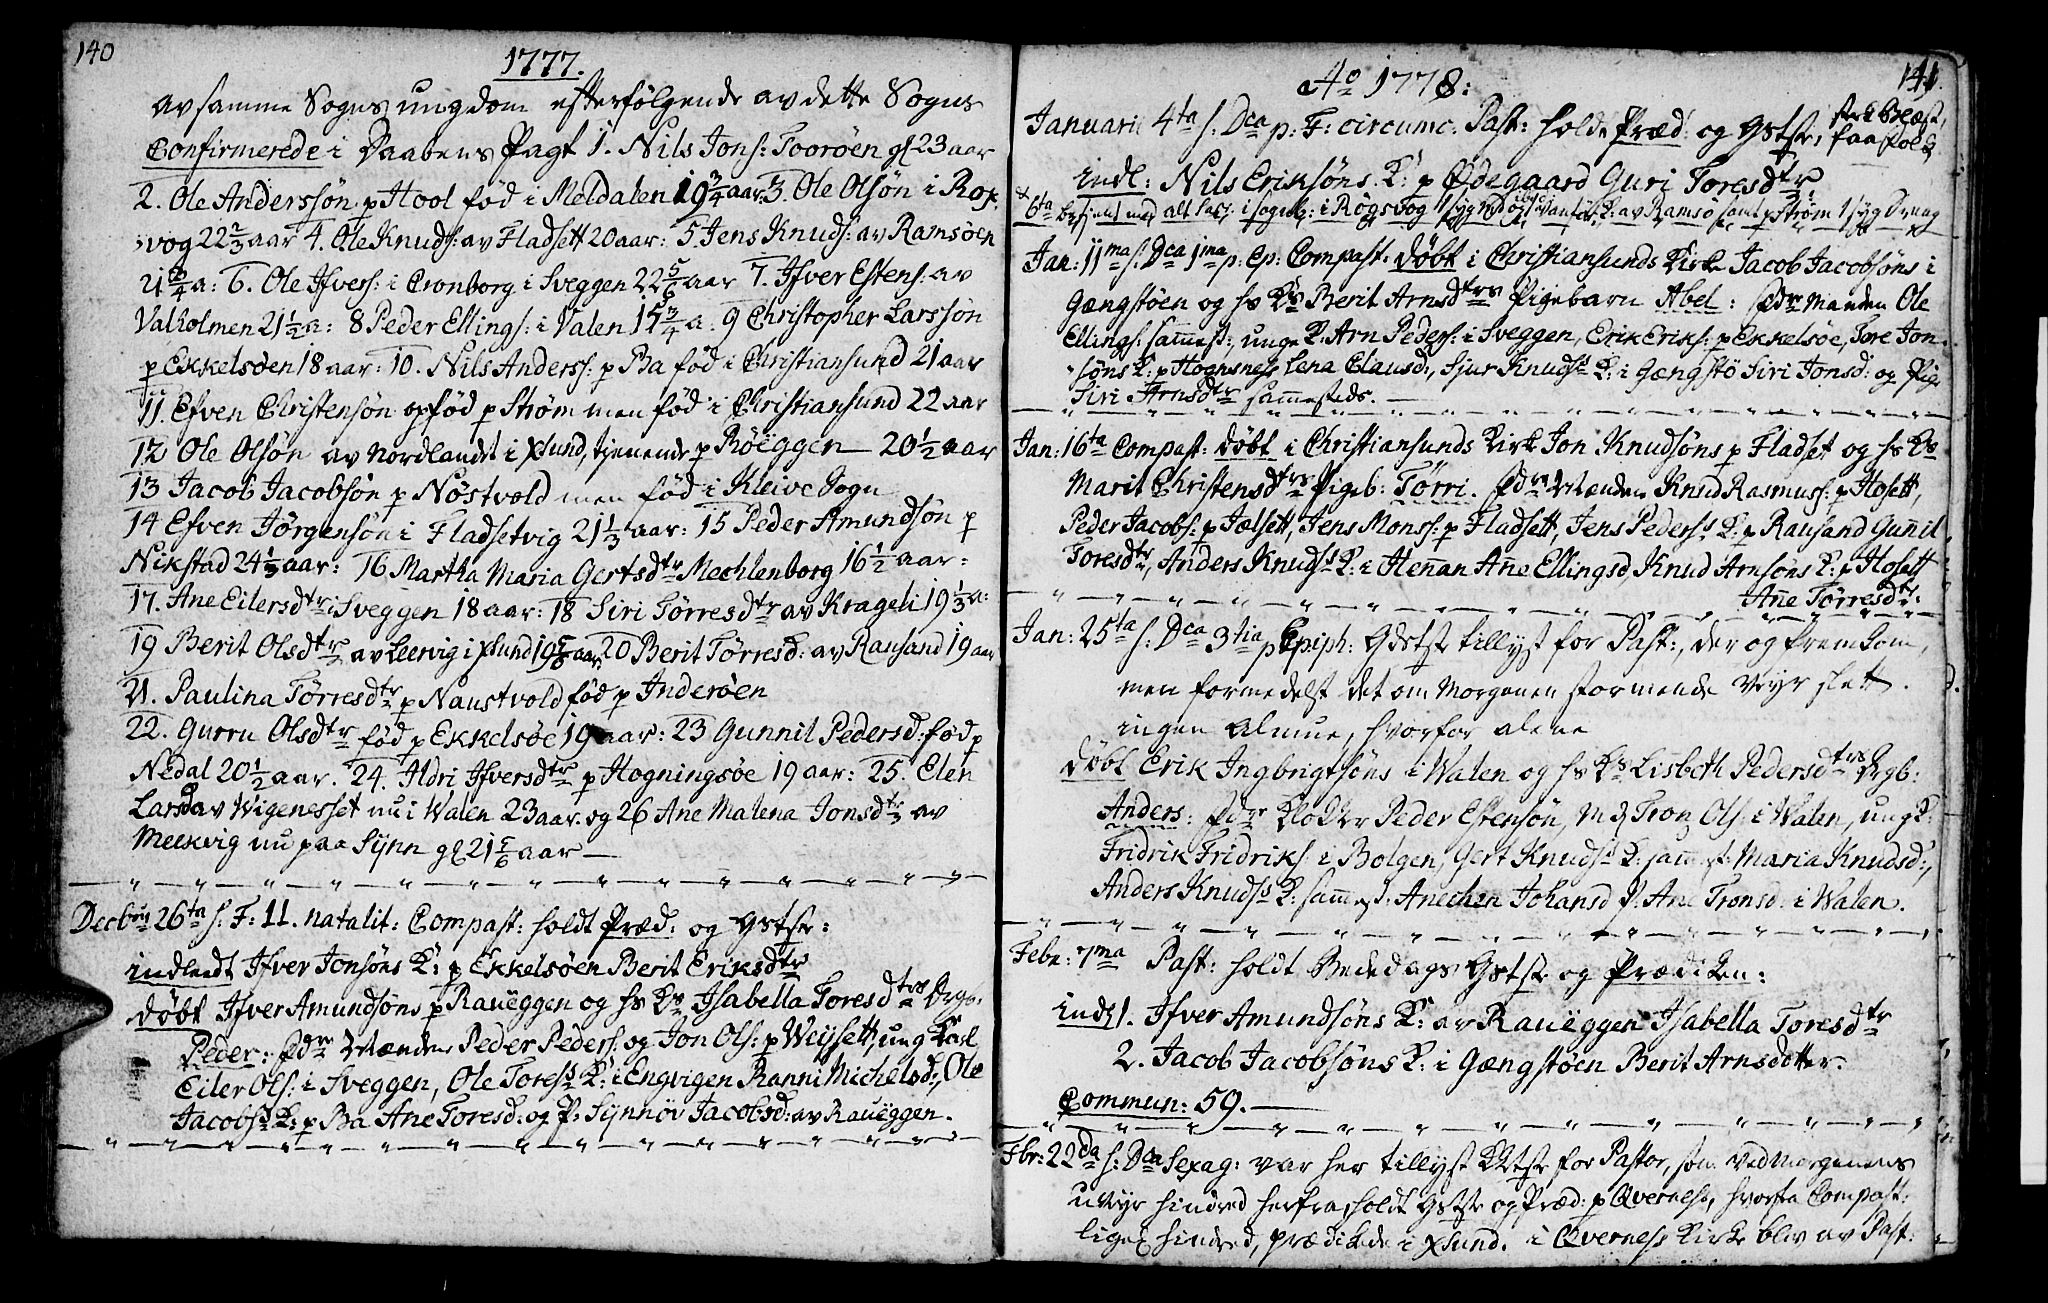 140
1777.
av samme Sogns ungdom efterfølgende av dette Sogns
Confirmerede i Daabens Pagt 1. Nils Jons: Toorøen gl 23 aar
2. Ole Anderssön p Hool fød i Meldalen 19 3/4 aar: 3. Ole Olsøn i Rox-
vog 22 2/3 aar 4. Ole Knuds: av Fladsett 20 aar: 5 Jens Knuds: av Ramsøen
21 2/4 a: 6. Ole Ifvers: i Cronborg i Sveggen 22 5/6 aar 7. Ifver Estens: av
Valholmen 21 1/2 a: 8 Peder Ellings: i Valen 15 3/4 a: 9 Christopher Larssøn
p Ekkelsøen 18 aar: 10. Nils Anderss: p Ba fød i Christiansund 21 aar
11. Efven Christensøn opfød p Strøm men fød i Christiansund 22 aar
12 Ole Olsøn av Nordlandet i Xsund, tjenende p Røeggen — 20 1/2 aar
13 Jacob Jacobsøn p Nöstvold men fød i Kleive Sogn
14 Efven Jørgensøn i Fladsetvig 21 1/3 aar: 15 Peder Amundsøn p
Nikstad 24 1/3 aar: 16 Martha Maria Gertsdtr Mechlenborg 16 1/2 aar:
17. Ane Eilersdtr i Sveggen 18 aar: 18 Siri Tørresdtr av Krageli 19 1/3 a:
19 Berit Olsdtr av Leervig i Xsund 19 5/6 aar 20 Berit Tørresd: av Rausand 19 aar
21. Paulina Tørresdtr p Naustvold fød p Inderøen
22. Gurru Olsdtr fød p Ekkelsøe 19 aar: 23 Gunnil Pedersd: fød p
Nedal 20 1/2 aar. 24. Ildri Ifversdtr p Hogningsøe 19 aar: 25. Elen
Larsd av Wigenesset nu i Walen 23 aar. og 26 Ane Malena Jonsdtr av
Meekvig nu paa Synn gl 21 5/6 aar —
Decbris 26ta s: F: 11. natalit: Compast: holdt Præd: og Gstse:
indleedt Ifver Jonsøns K: p Ekkelsøen Berit Eriksdtr
døbt Ifver Amundsøns p Raueggen og hs Ks Isabella Toresdtrs Drgb:
Peder: Fdre Mændene Peder Peders: og Jon Ols: p Weysett, ung Karl
Eiler Ols: i Sveggen, Ole Toress K: i Engvigen Ranni Michelsd:, Ole
Jacobss K: p Ba Ane Toresd: og P: Synnøv Jacobsd: av Raueggen.
141.
Ao 1778:
Januarii 4ta s: Dca p: F: circumc: Past: holdt Præd: og Gstse, sterk blæst, faa folk
indl: Nils Eriksøns K: p Ødegaard Guri Toresdtr
Jan: 11ma s: Dca 1ma p: Ep: Compast: døbt i Christiansunds Kirke Jacob Jacobsøns i
Gængstøen og hs Ks Berit Arnsdtrs Pigebarn Abel: Fdre Manden Ole
Ellings: sammest:, unge K: Arn Peders: i Sveggen, Erik Eriks: p Ekkelsøe, Tore Jon-
søns K: p Hognsnes Lena Clausd:, Sjur Knudss K: i Gængstø Siri Jonsd: og Pige
Siri Arnsdtr sammesteds.
Jan: 16ta Compast: døbt i Christiansunds Kirke Jon Knudsøns p Fladset og hs Ks
Marit Christensdtrs Pigeb: Tørri. Fdre Mændene Knud Rasmuss: p Hosett,
Peder Jacobs: p Jælsett, Jens Monss: p Fladsett, Jens Peders K: p Rausand Gunil
Toresdtr, Anders Knudss K: i Henan Ane Ellingsd Knud Arnsøns K: p Hosett
Ane Tørresdtr.
Jan: 25ta s: Dca 3tia p Epiph: Gdstste tillyst for Past:, der og fremkom,
men formedelst det om Morgenen stormende Veyr slett
ingen Almue, hvorfor alene
døbt Erik Ingbrigtsøns i Walen og hs Ks Lisbeth Pedersdtrs Drgb:
Anders: Fdre Klokker Peder Estensøn, M: Tron Ols: i Walen, ung K:
Fridrik Fridriks: i Bolgen, Gert Knudss K: sammest: Maria Knudsd:,
Anders Knudss K: sammest. Anechen Johansd P: Ane Tronsd: i Walen.
Febr: 7ma Past: holdt Bededags Gstste og Prædiken:
indl 1. Ifver Amundsøns K: av Raueggen Isabella Toresdtr
2. Jacob Jacobsøns K: i Gængstøen Berit Arnsdotter.
Commun: 59. —
Fbr: 22da s: Dca Sexag: var her tillyst Gstste for Pastor, som ved Morgenens
uveyr hindred herfra, holdt Gstste og Præd: p Qverness, hvorfra Compast:
liges hindred, prædikede i Xsund. i Qverness Kirke blev av Past: